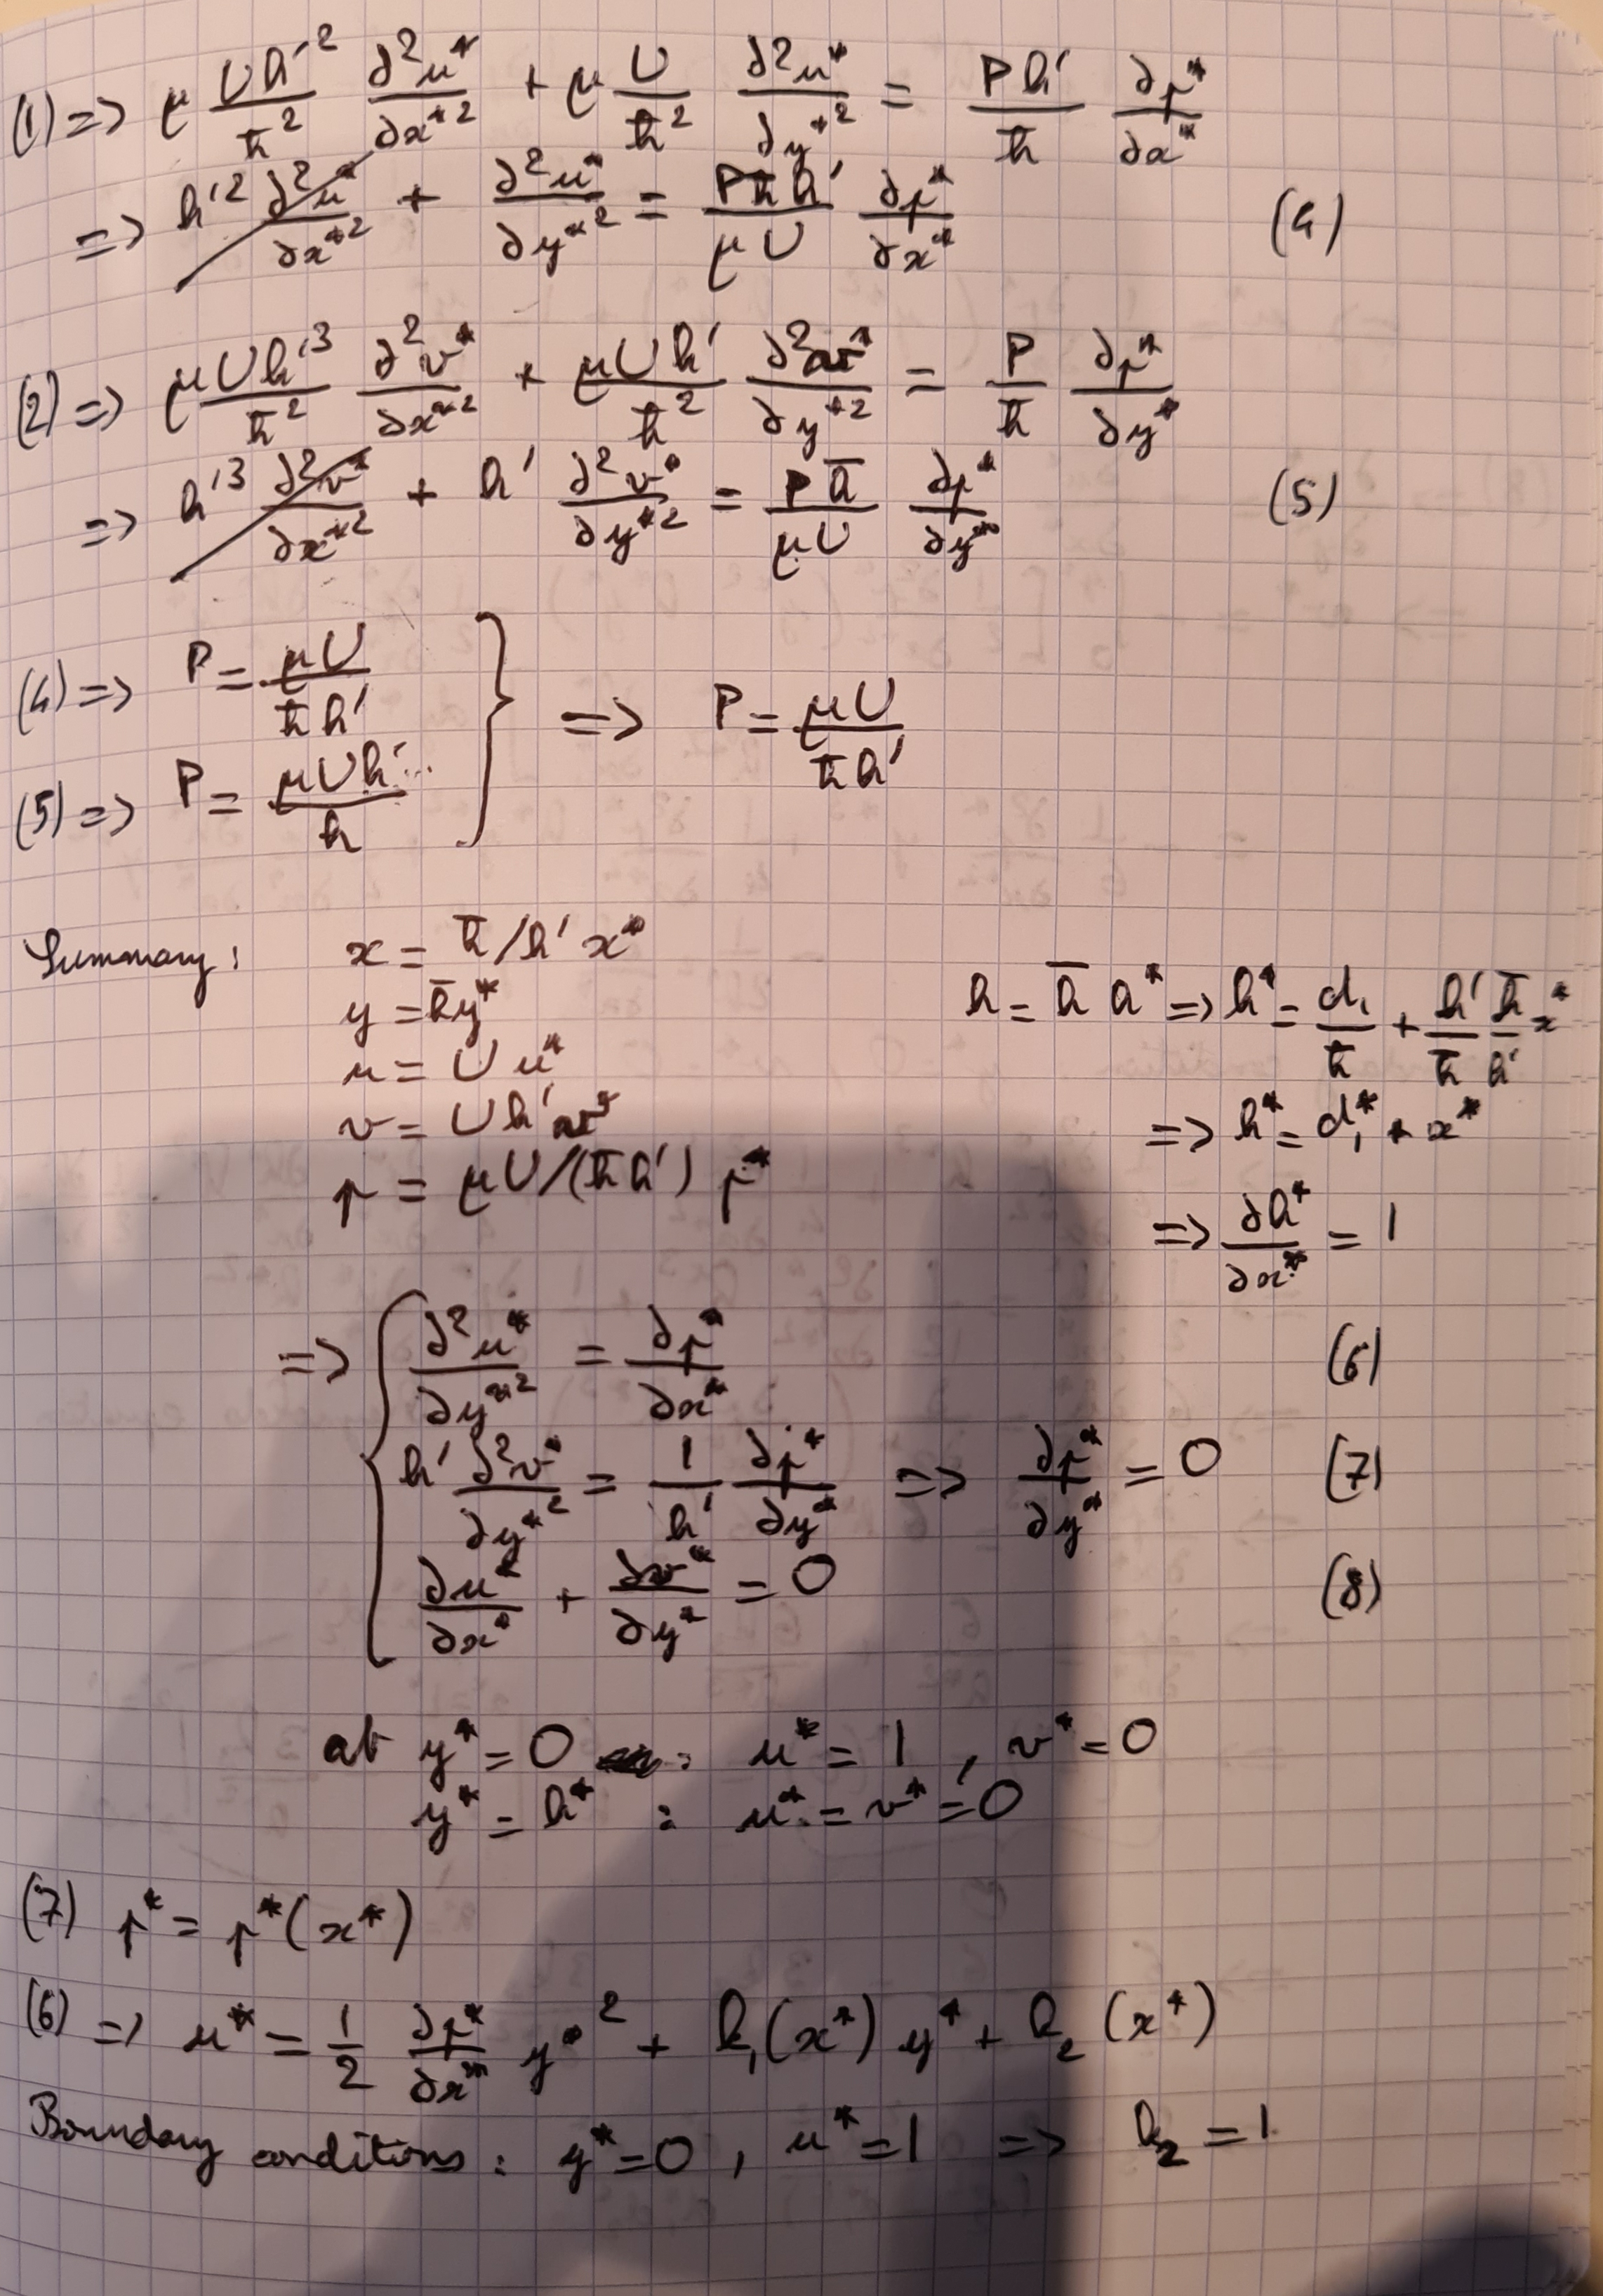 (1) => μ Uh'²/h̄² ∂²u*/∂x*² + μ U/h̄² ∂²u*/∂y*² = Ph'/h̄ ∂p*/∂x*
=> h'² ∂²u*/∂x*² + ∂²u*/∂y*² = Ph̄h'/μU ∂p*/∂x* (4)
(2) => μUh'³/h̄² ∂²v*/∂x*² + μUh'/h̄² ∂²v*/∂y*² = P/h̄ ∂p*/∂y*
=> h'³ ∂²v*/∂x*² + h' ∂²v*/∂y*² = Ph̄/μU ∂p*/∂y* (5)
(4) => P = μU/h̄h'
(5) => P = μUh'/h
} => P = μU/h̄h'
Summary: x = h̄/h' x*
y = h̄y*
u = Uu*
v = Uh'v*
p = μU/(h̄h') p*
h = h̄ h* => h* = d₁/h̄ + h'/h̄ h̄/h' x*
=> h* = d₁* + x*
=> ∂h*/∂x* = 1
=> { ∂²u*/∂y*² = ∂p*/∂x* (6)
h' ∂²v*/∂y*² = 1/h' ∂p*/∂y* => ∂p*/∂y* = 0 (7)
∂u*/∂x* + ∂v*/∂y* = 0 (8)
at y* = 0 : u* = 1, v* = 0
y* = h* : u* = v* = 0
(7) p* = p*(x*)
(6) => u* = 1/2 ∂p*/∂x* y*² + k₁(x*) y* + k₂(x*)
Boundary conditions: y* = 0, u* = 1 => k₂ = 1